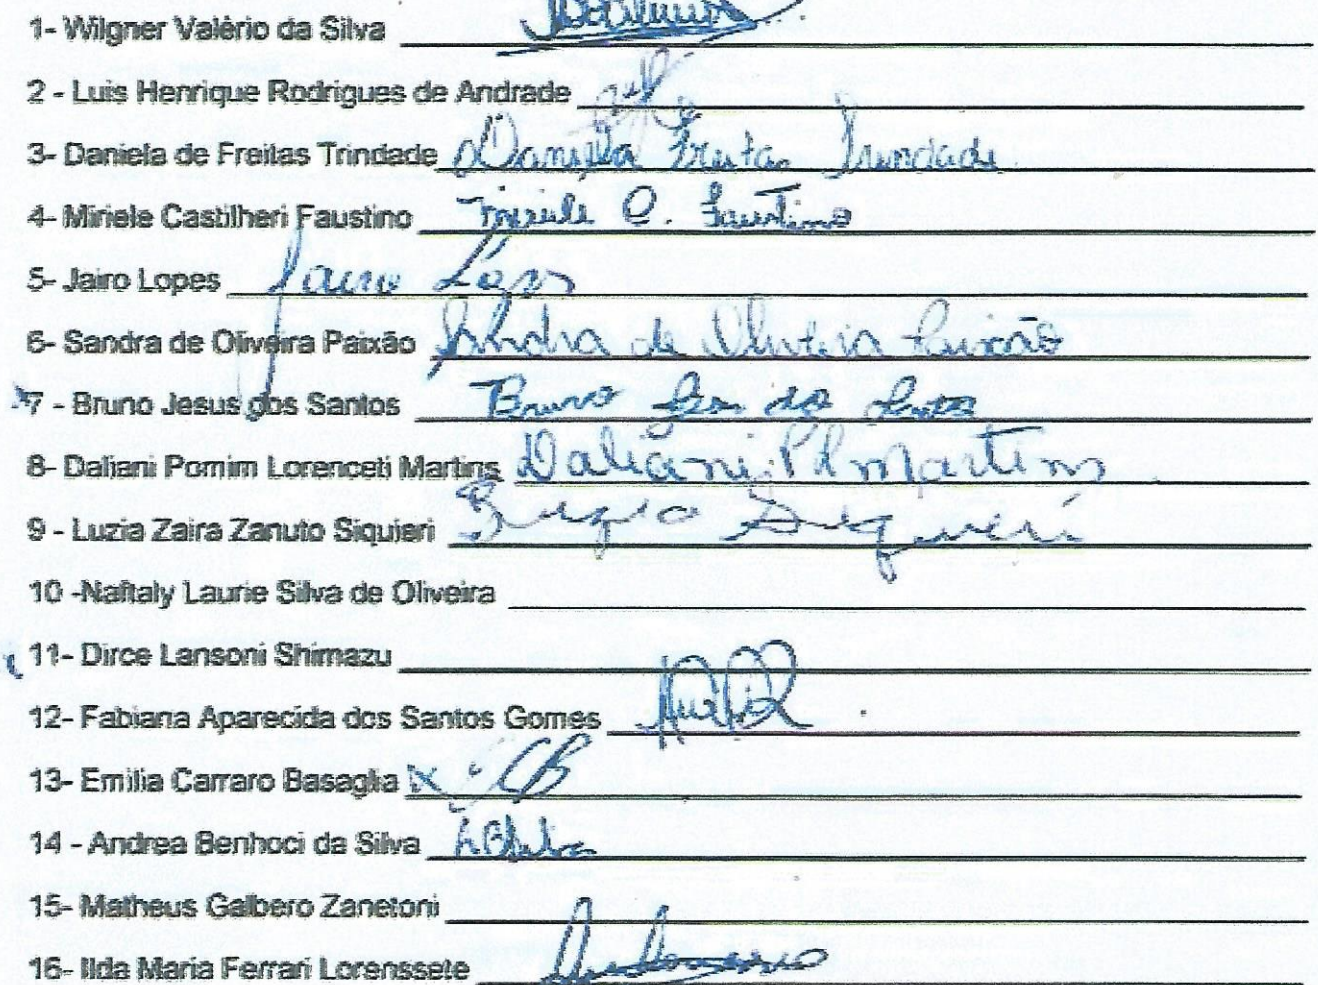 1- Wilgner Valério da Silva
2 - Luis Henrique Rodrigues de Andrade
3- Daniela de Freitas Trindade Daniela Freitas Trindade
4- Miriele Castilheri Faustino Miriele C. Faustino
5- Jairo Lopes Jairo Lopes
6- Sandra de Oliveira Paixão Sandra de Oliveira Paixão
7 - Bruno Jesus dos Santos Bruno
8- Daliani Pomim Lorenceti Martins Daliani PL Martins
9 - Luzia Zaira Zanuto Siquieri Luzia Siquieri
10 -Naftaly Laurie Silva de Oliveira
11- Dirce Lansoni Shimazu
12- Fabiana Aparecida dos Santos Gomes
13- Emilia Carraro Basaglia
14 - Andrea Benhoci da Silva
15- Matheus Galbero Zanetoni
16- Ilda Maria Ferrari Lorenssete